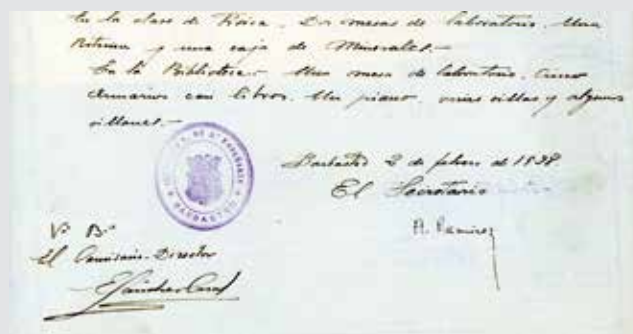 En la clase de Física. Dos mesas de laboratorio. Una
y una caja de Minerales.-
En la Biblioteca. Una mesa de laboratorio. Cinco
armarios con libros. Un piano, unas sillas y algunos
sillones.-
Barbastro 2 de febrero de 1938
El Secretario
DE 2ª ENSEÑANZA
BARBASTRO
A. Ramírez
Vº Bº
El Comisario-Director